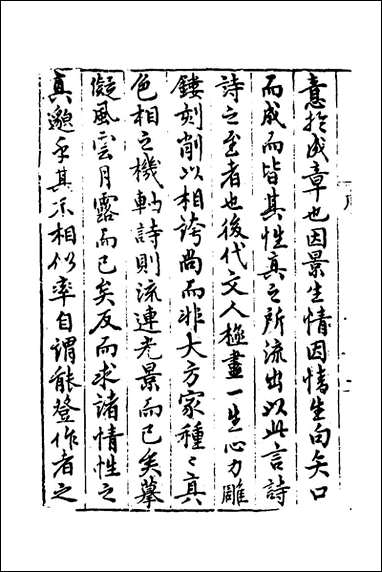 意於成章也因景生情因情生句矢口
而成而皆其性真之所流出以此言詩
詩之至者也後代文人極畫一生心力雕
鏤刻削以相誇尚而非大方家種〻真
色相之機軸詩則流連光景而已矣摹
儗風雲月露而已矣反而求諸情性之
真邈乎其不相似率自謂能登作者之